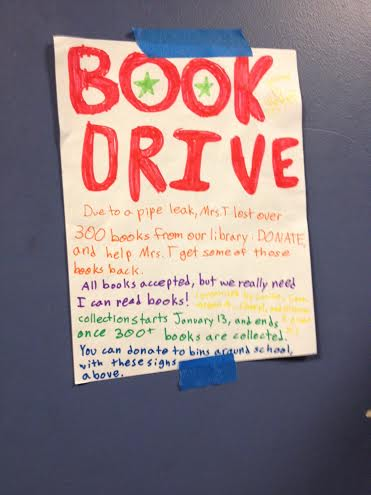 BOOK
DRIVE
Due to a pipe leak, Mrs.T lost over
300 books from our library. DONATE,
and help Mrs. T get some of those
books back.
All books accepted, but we really need
I can read books!
collection starts January 13, and ends
once 300+ books are collected.
You can donate to bins around school,
with these signs
above.